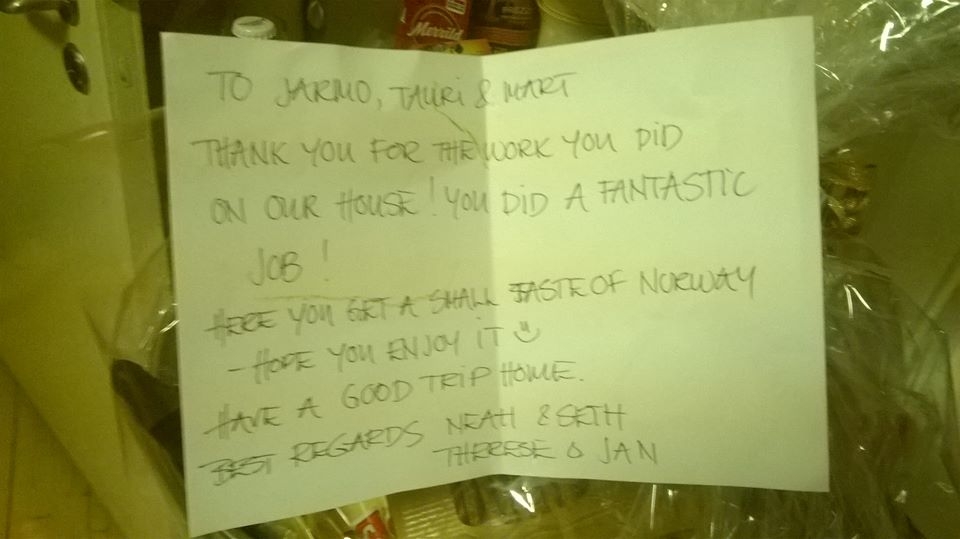 Merrild
TO JARMO, TAURI & MART
THANK YOU FOR THE WORK YOU DID
ON OUR HOUSE! YOU DID A FANTASTIC
JOB!
HERE YOU GET A SMALL TASTE OF NORWAY
- HOPE YOU ENJOY IT
HAVE A GOOD TRIP HOME.
BEST REGARDS NEAH & SETH
THERESE & JAN